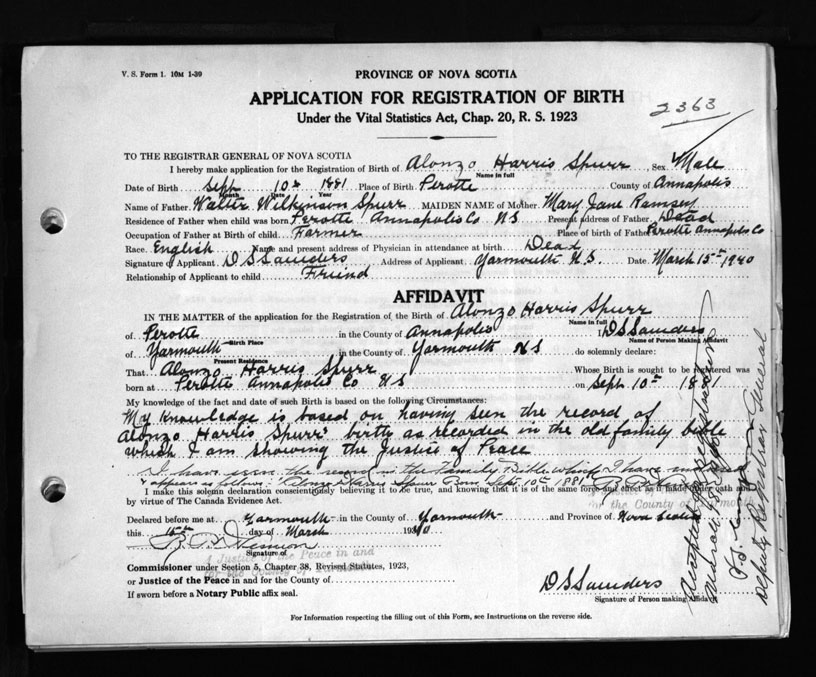 V. S. Form 1. 10M 1-39
PROVINCE OF NOVA SCOTIA
APPLICATION FOR REGISTRATION OF BIRTH
2363
Under the Vital Statistics Act, Chap. 20, R. S. 1923
TO THE REGISTRAR GENERAL OF NOVA SCOTIA
I hereby make application for the Registration of Birth of Alonzo Harris Spurr Sex Male
Name in full
Date of Birth Sept 10th 1881 Place of Birth Perotte County of Annapolis
Month Date Year
Name of Father Walter Wilkinson Spurr MAIDEN NAME of Mother Mary Jane Ramsey
Residence of Father when child was born Perotte Annapolis Co N S Present address of Father Dead
Occupation of Father at Birth of child Farmer Place of birth of Father Perotte Annapolis Co
Race English Name and present address of Physician in attendance at birth Dead
Signature of Applicant D S Saunders Address of Applicant Yarmouth N.S. Date March 15th 1940
Relationship of Applicant to child Friend
AFFIDAVIT
IN THE MATTER of the application for the Registration of the Birth of Alonzo Harris Spurr
Name in full
of Perotte in the County of Annapolis I, D S Saunders
Birth Place Name of Person Making Affidavit
of Yarmouth in the County of Yarmouth N S do solemnly declare:
Present Residence
That Alonzo Harris Spurr Whose Birth is sought to be registered was
born at Perotte Annapolis Co N S on Sept 10th 1881
My knowledge of the fact and date of such Birth is based on the following Circumstances:
My Knowledge is based on having seen the record of
Alonzo Harris Spurr's birth as recorded in the old family bible
which I am showing the Justice of Peace
I have seen the record in the Family Bible which I have
& appears as follows: "Alonzo Harris Spurr Born Sept. 10th 1881"
I make this solemn declaration conscientiously believing it to be true, and knowing that it is of the same force and effect as if made under oath and
by virtue of The Canada Evidence Act.
for the County of
Declared before me at Yarmouth in the County of Yarmouth and Province of Nova Scotia
this 15th day of March 1940
Signature of
A Justice of the Peace in and
for the County of
Commissioner under Section 5, Chapter 38, Revised Statutes, 1923,
or Justice of the Peace in and for the County of
If sworn before a Notary Public affix seal.
D S Saunders
Signature of Person making Affidavit
For Information respecting the filling out of this Form, see Instructions on the reverse side.
Deputy Registrar General